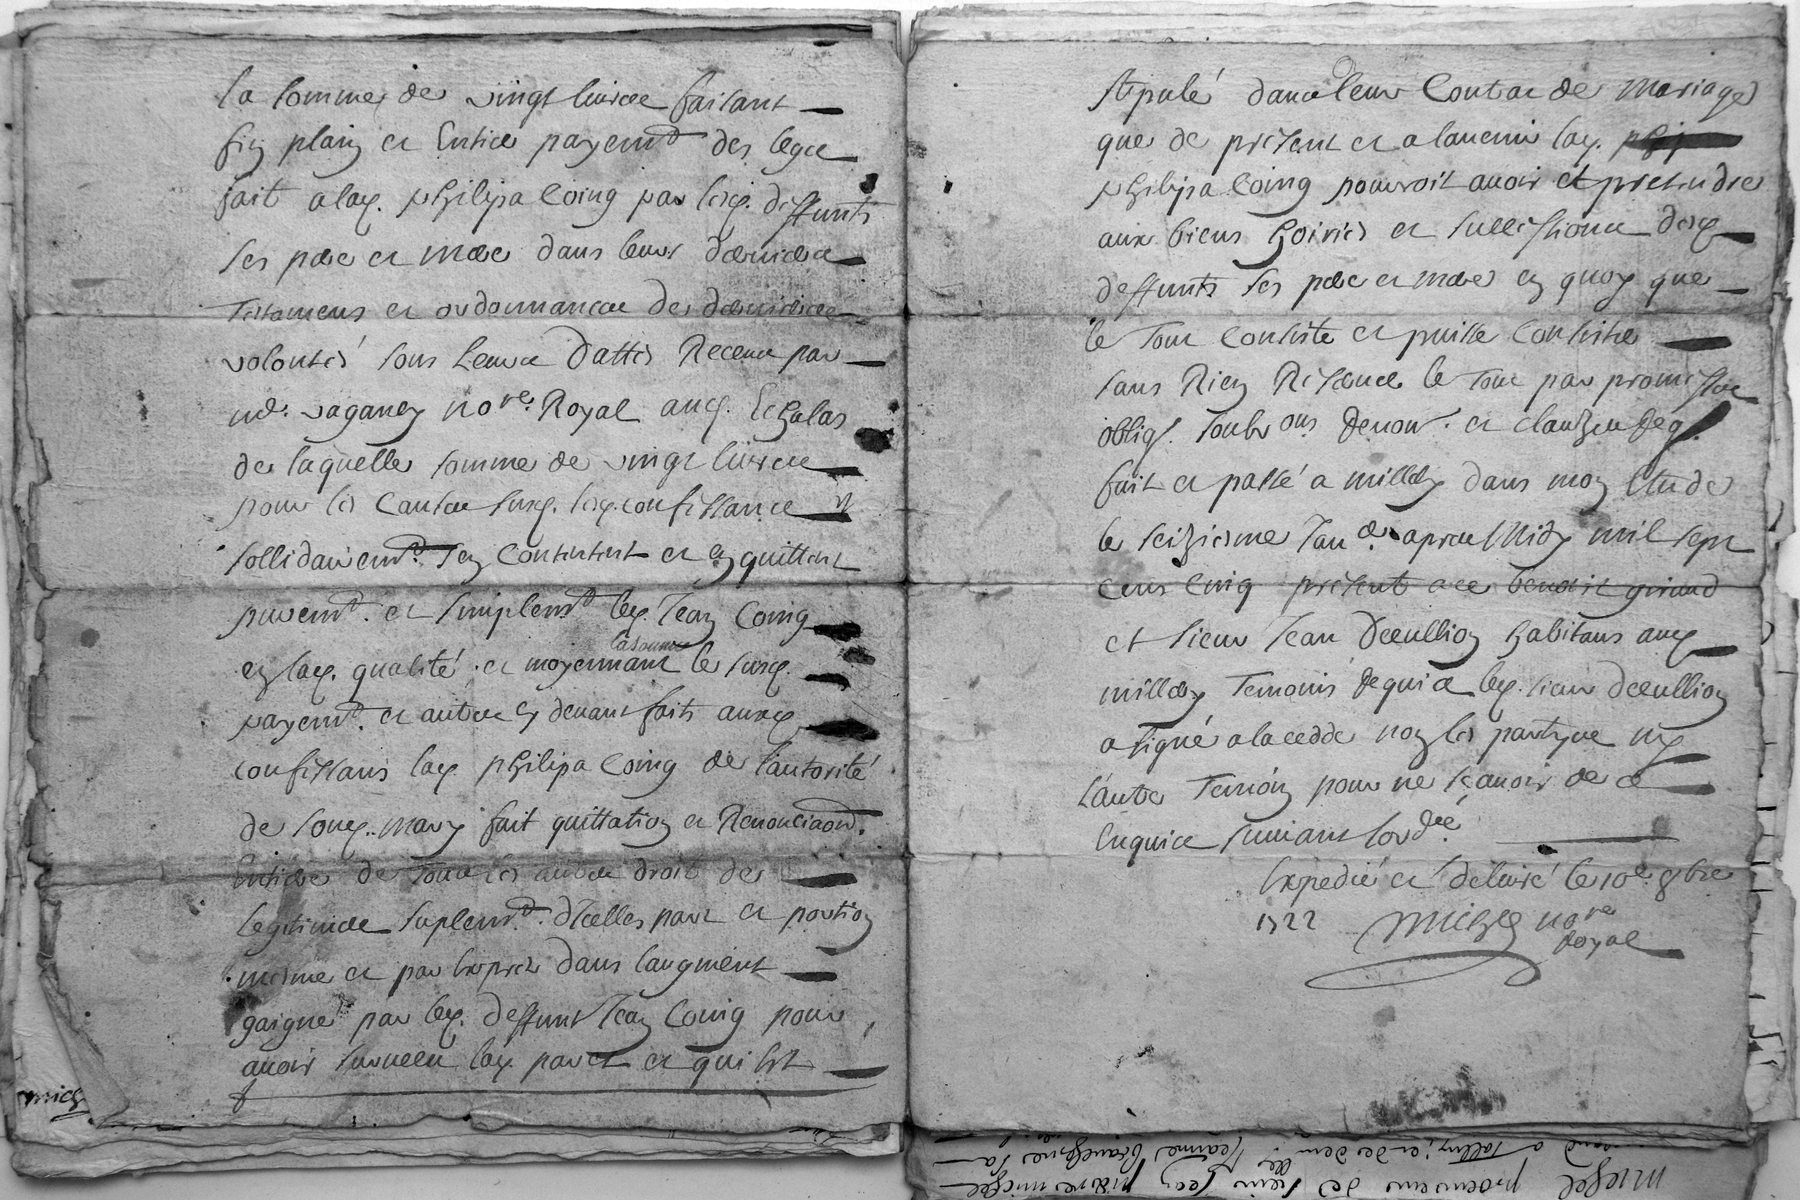 la somme de vingt livres faisant
fin plain et Entier payemt des legas
fait a lad. philipa Coing par lesd. deffunts
ses pere et mere dans leurs derniers
Testamens et ordonnances de dernieres
volontés sous Leurs dattes Receus par
me. vaganey nore. Royal aud. Echalas
de laquelle somme de vingt livres
pour les Causes susd. lesd. confessants
sollidairemt. sen Contentent et en quittent
puremt. et simplemt led. Jean Coing
en lad. qualité et moyennant le susd.
la somme
payemt. et autres cy devant faits auxd
confessans lad philipa Coing de lautorité
de sond. mary fait quittation et Renonciaon
Entiere de Tous les autres droit de
legitime suplemt. dicelles part et portion
mesme et par Exprez dans laugment
gaigné par led. deffunt Jean Coing pour
avoir survecu lad et qui Est
stipulé dans leur Contrat de Mariage
que de present et a lavenir lad.
philipa Coing pourroit avoir et pretendre
aux biens hoiries et successions desd
deffunts ses pere et mere en quoy que
le Tout Consiste et puisse Consister
sans Rien Reserver le Tout par promesse
obligs. soubmons Renon. et clauzes Req.
fait et passé a millery dans mon Etude
le seizieme Janer. apres Midy mil sept
cens cinq presents Benoist giraud
et sieur Jean Dreullion habitans aud
millery Temoins Requis led. sieur Dreullion
a signé a la cedde non les partyes ny
L'autre Temoin pour ne scavoir de ce
Enquis suivant lordee
Expedié et delivré le 10e 8bre
1722 Michel nore
Royal
mich